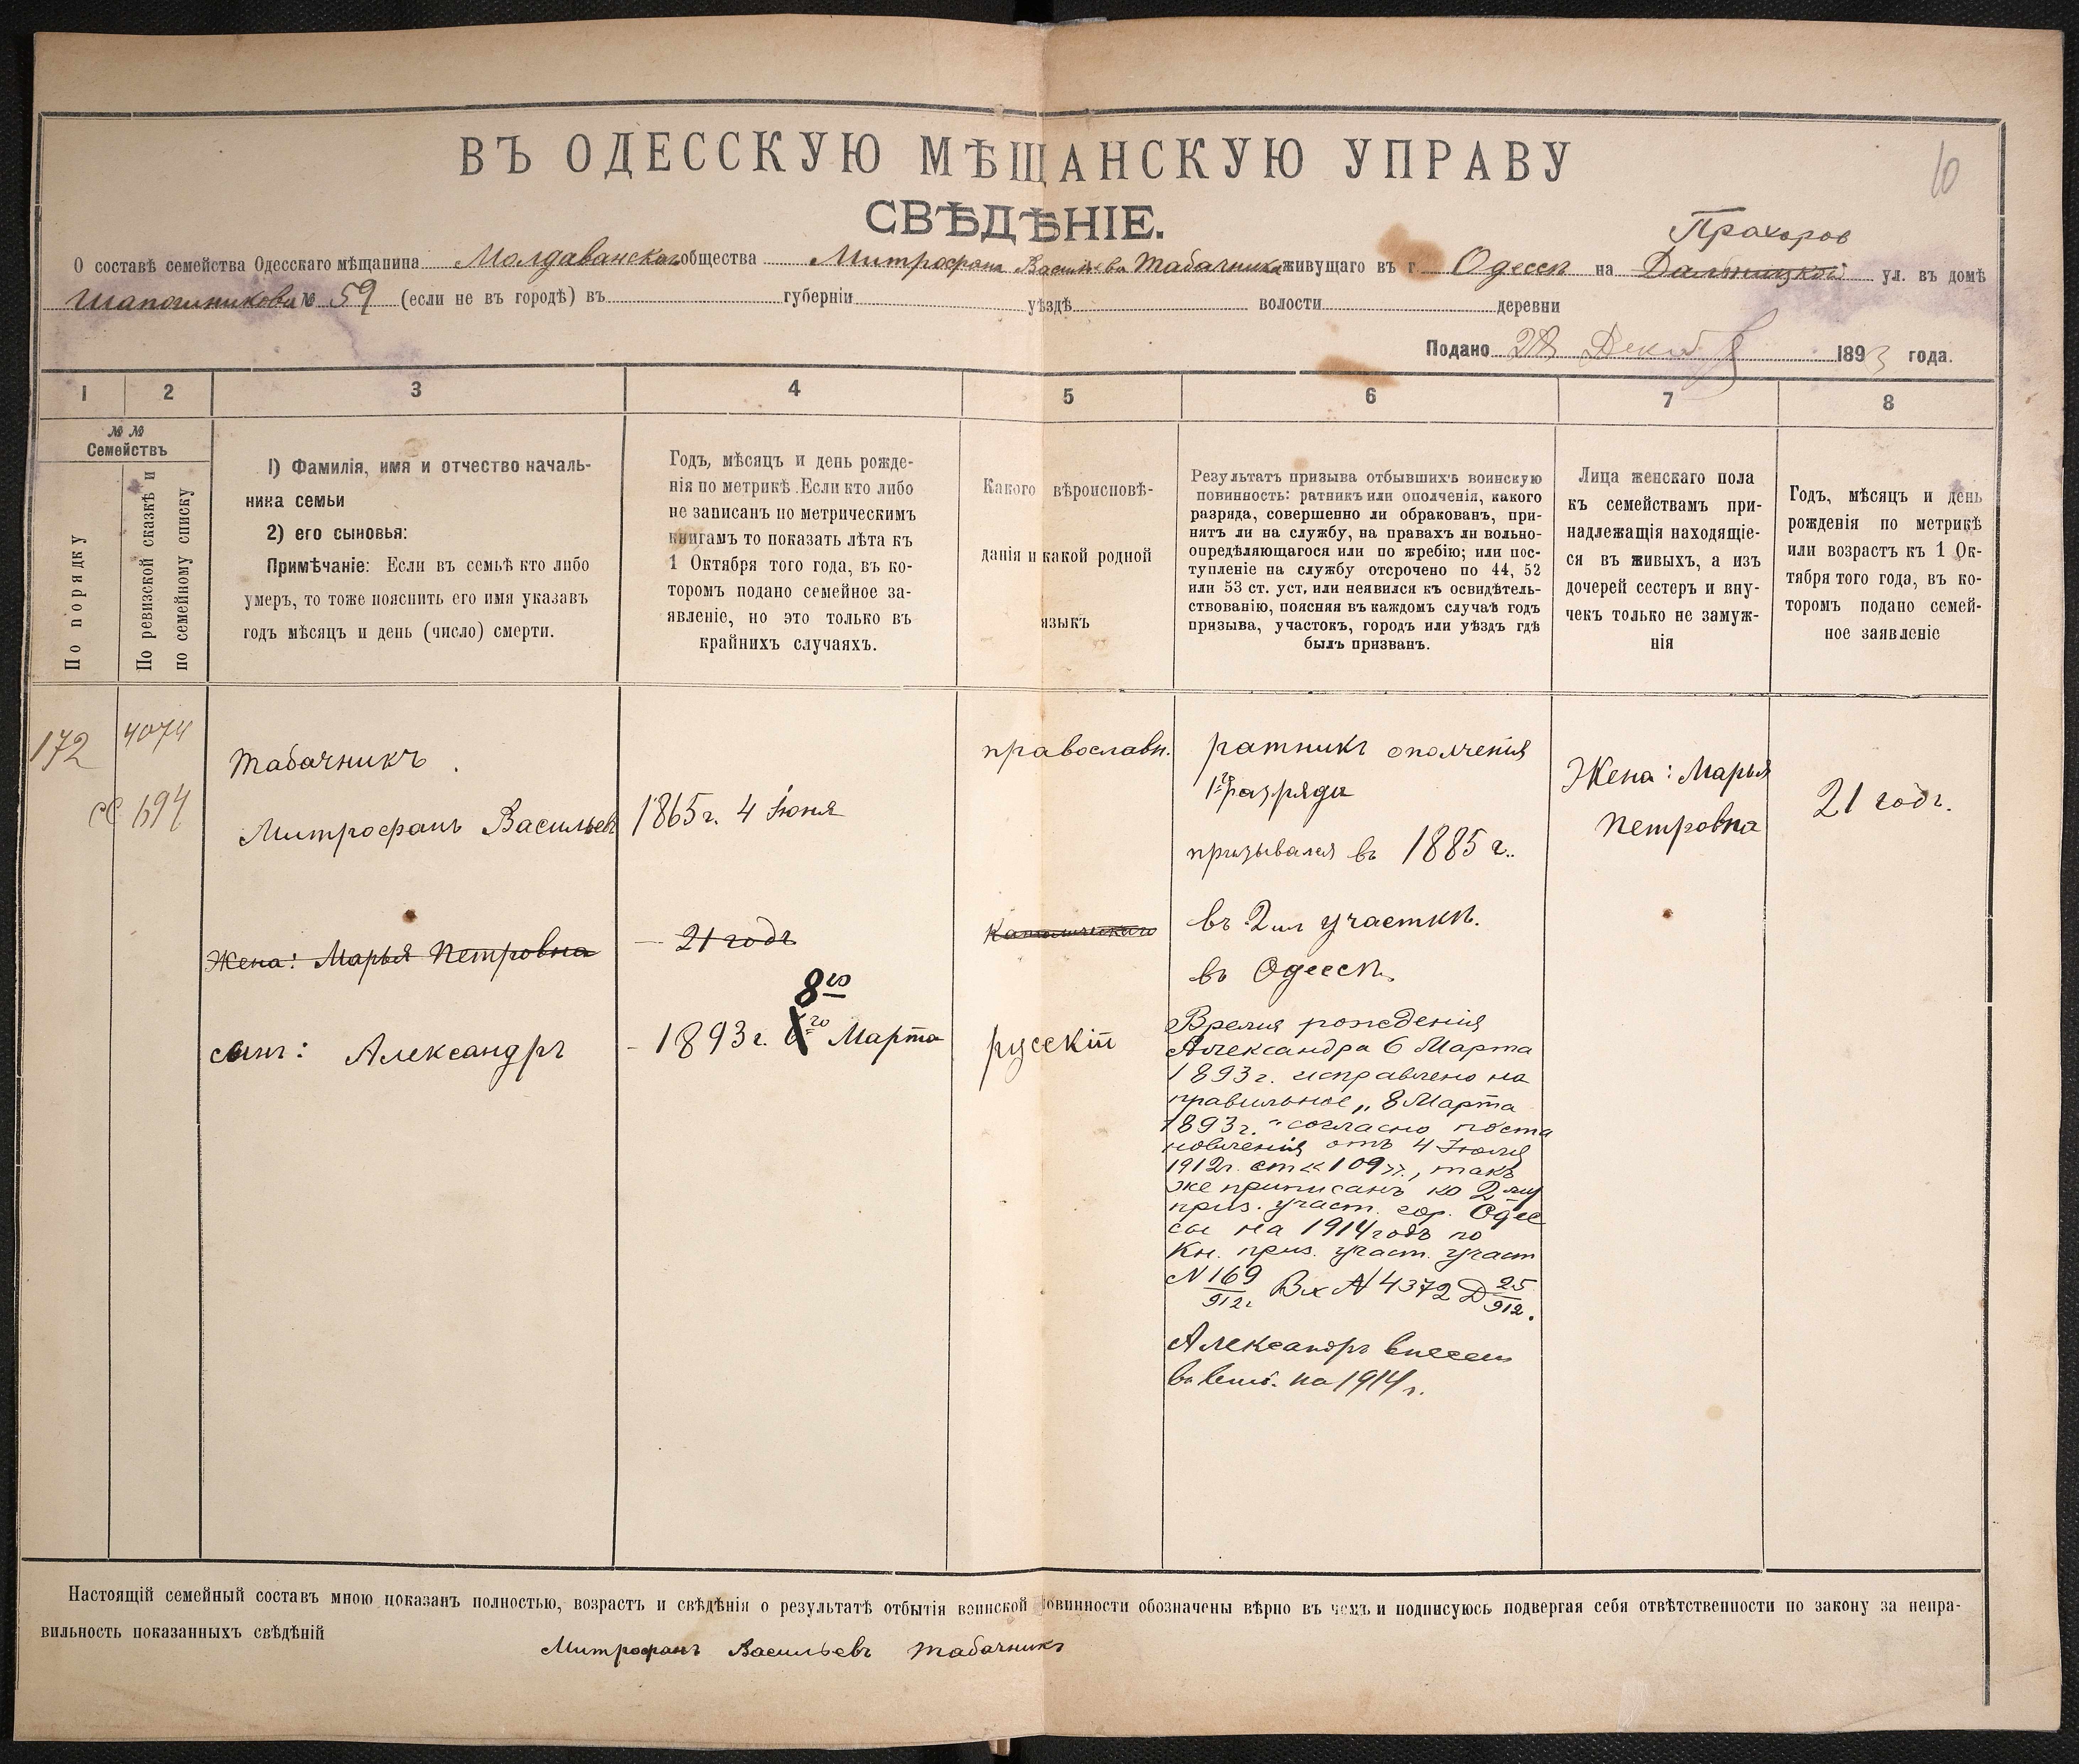 10
ВЪ ОДЕССКУЮ МѢЩАНСКУЮ УПРАВУ
СВѢДѢНІЕ.
Прахоров
О составѣ семейства Одесскаго мѣщанина Молдаванскаго общества Митрофана Васильева Табачника живущаго въ г. Одессѣ на Дальницкой ул. въ домѣ
Шапошникова № 59 (если не въ городѣ) въ губерніи уѣздѣ волости деревни
Подано 28 Декаб 1893 года.
1 2 3 4 5 6 7 8
№ №
Семействъ
По порядку
По ревизской сказкѣ и
по семейному списку
1) Фамилія, имя и отчество началь-
ника семьи
2) его сыновья:
Примѣчаніе: Если въ семьѣ кто либо
умеръ, то тоже пояснить его имя указавъ
годъ мѣсяцъ и день (число) смерти.
Годъ, мѣсяцъ и день рожде-
нія по метрикѣ. Если кто либо
не записанъ по метрическимъ
книгамъ то показать лѣта къ
1 Октября того года, въ ко-
торомъ подано семейное за-
явленіе, но это только въ
крайнихъ случаяхъ.
Какого вѣроисповѣ-
данія и какой родной
языкъ
Результатъ призыва отбывшихъ воинскую
повинность: ратникъ или ополченія, какого
разряда, совершенно ли обракованъ, при-
нятъ ли на службу, на правахъ ли вольно-
опредѣляющагося или по жребію; или пос-
тупленіе на службу отсрочено по 44, 52
или 53 ст. уст, или неявился къ освидѣтель-
ствованію, поясняя въ каждомъ случаѣ годъ
призыва, участокъ, городъ или уѣздъ гдѣ
былъ призванъ.
Лица женскаго пола
къ семействамъ при-
надлежащія находящіе-
ся въ живыхъ, а изъ
дочерей сестеръ и вну-
чекъ только не замуж-
нія
Годъ, мѣсяцъ и день
рожденія по метрикѣ
или возрастъ къ 1 Ок-
тября того года, въ ко-
торомъ подано семей-
ное заявленіе
172
4074
694
Табачникъ
Митрофанъ Васильевъ
1865 г. 4 Іюня
православн.
ратникъ ополченія
1го разряда
призывался въ 1885 г.
въ 2мъ участкѣ.
въ Одессѣ
Жена: Марья
Петровна
21 годъ.
Жена: Марья Петровна
21 годъ
8го
сынъ: Александръ
1893 г. 6го Марта
русскій
Время рожденія
Александра 6 Марта
1893 г. исправлено на
правильное „8 Марта
1893 г.“ согласно поста
новленія отъ 4 Іюля
1912 г. ст «109», такъ
же приписанъ ко 2му
приз. участ. гор. Одес
сы на 1914 годъ по
Кн. приз. участ. участ
N 169/912 г. Вх № 4372 Д 25/912.
Александръ внесен
на 1914 г.
Настоящій семейный составъ мною показанъ полностью, возрастъ и свѣдѣнія о результатѣ отбытія воинской повинности обозначены вѣрно въ чемъ и подписуюсь подвергая себя отвѣтственности по закону за непра-
вильность показанныхъ свѣдѣній
Митрофанъ Васильевъ Табачникъ